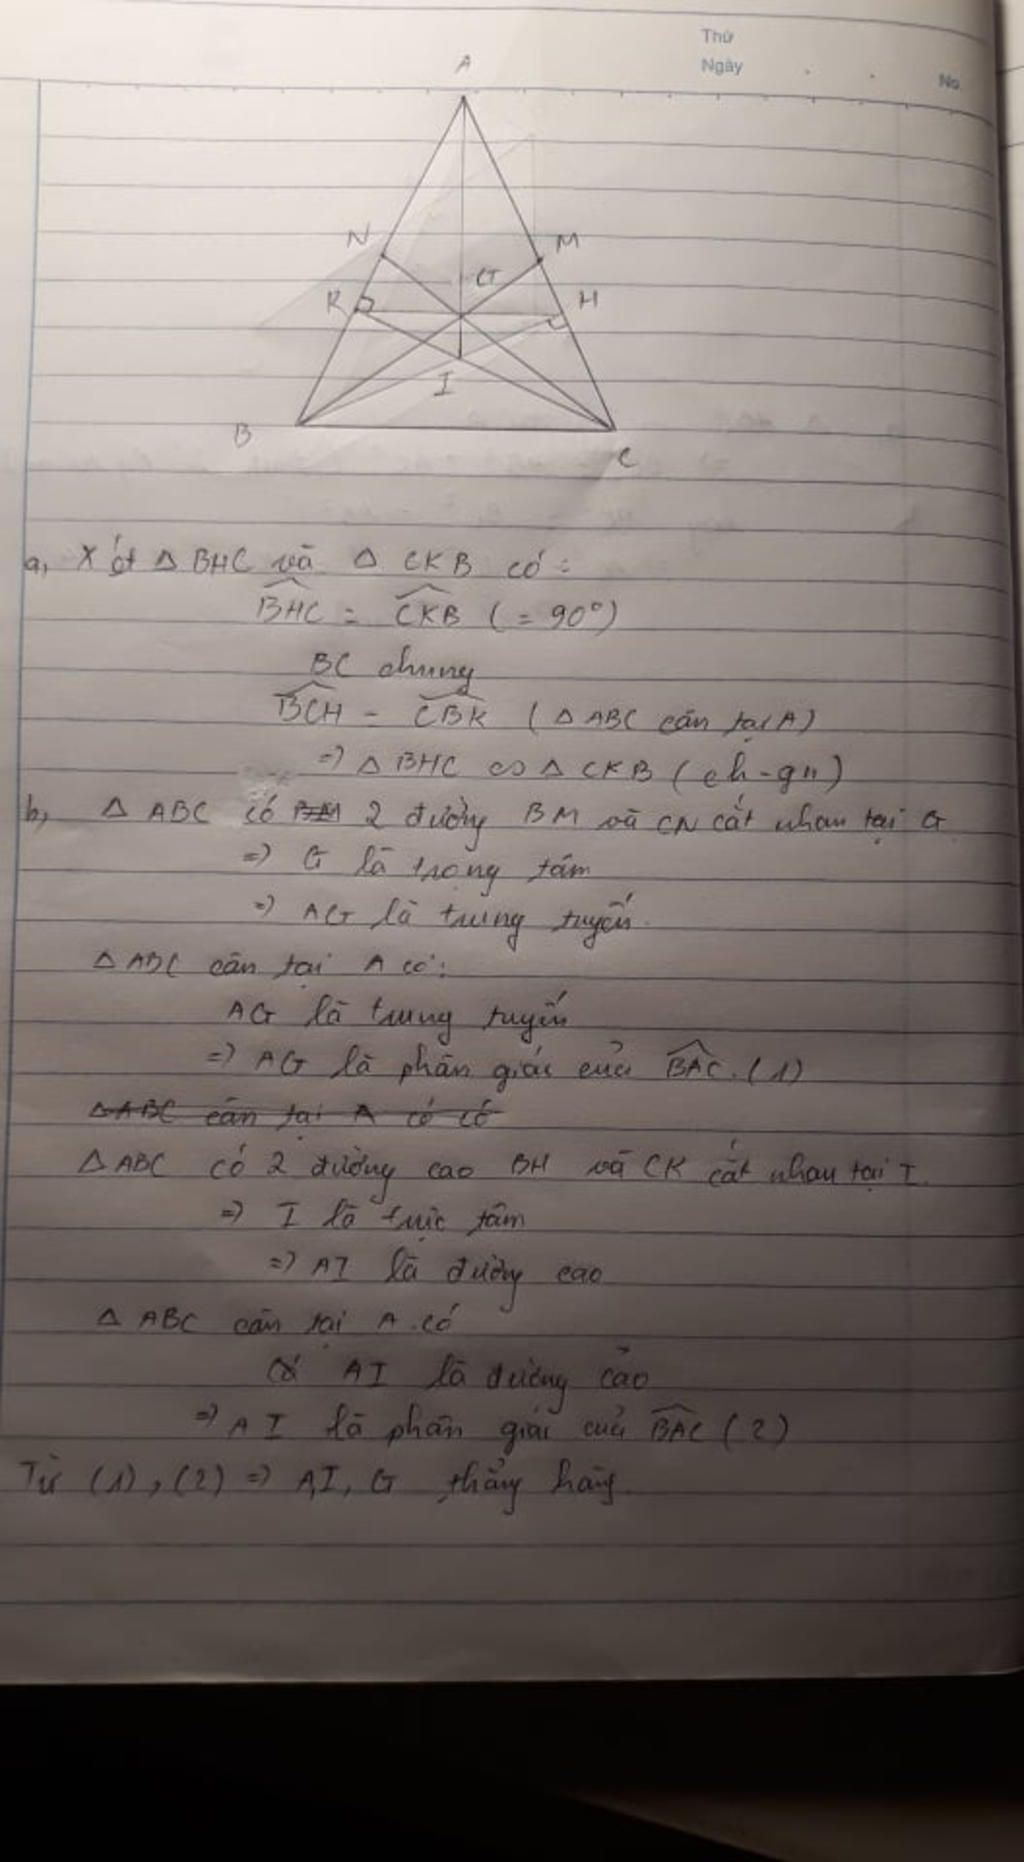 Thứ
Ngày
No.
A
N
M
G
K
H
I
B
C
a, Xét Δ BHC và Δ CKB có:
BHC = CKB ( = 90°)
BC chung
BCH = CBK ( Δ ABC cân tại A)
=> Δ BHC ∽ Δ CKB ( ch - gn )
b, Δ ABC có BM 2 đường BM và CN cắt nhau tại G
=> G là trọng tâm
=> AG là trung tuyến.
Δ ABC cân tại A có:
AG là trung tuyến
=> AG là phân giác của BAC. (1)
Δ ABC cân tại A có có
Δ ABC có 2 đường cao BH và CK cắt nhau tại I.
=> I là trực tâm
=> AI là đường cao
Δ ABC cân tại A có
AI là đường cao
=> AI là phân giác của BAC (2)
Từ (1), (2) => A,I, G thẳng hàng.